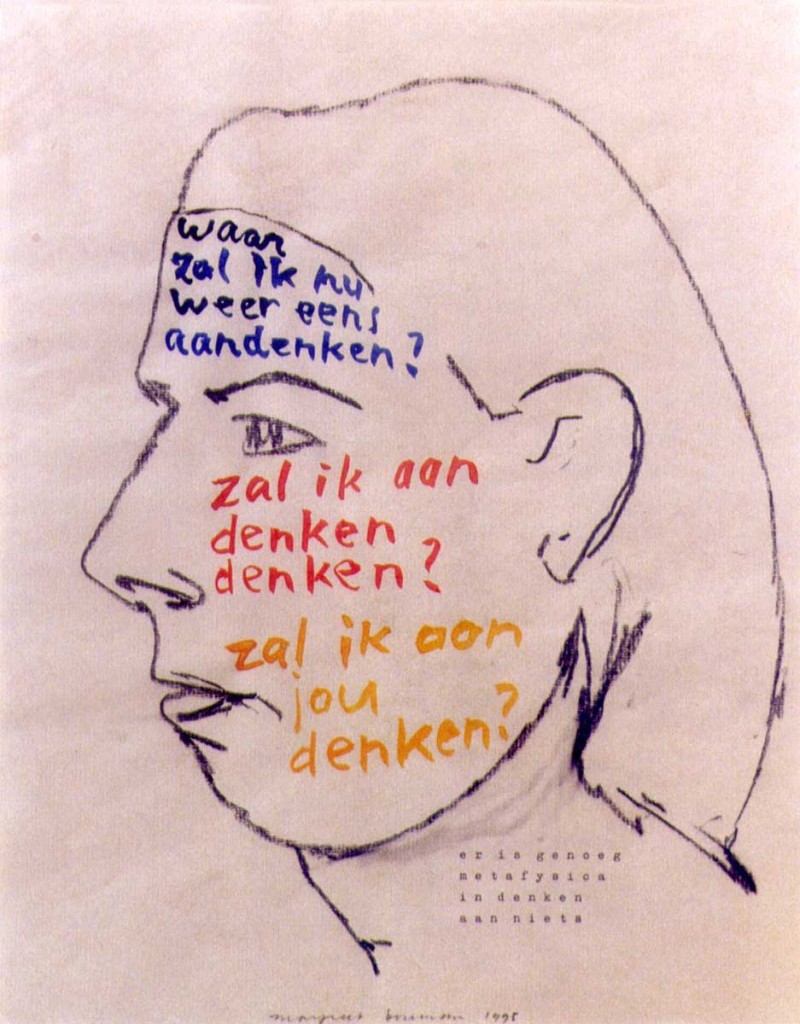 waar
zal ik nu
weer eens
aandenken?
zal ik aan
denken
denken?
zal ik aan
jou
denken?
er is genoeg
metafysica
in denken
aan niets
margreet bouman 1995